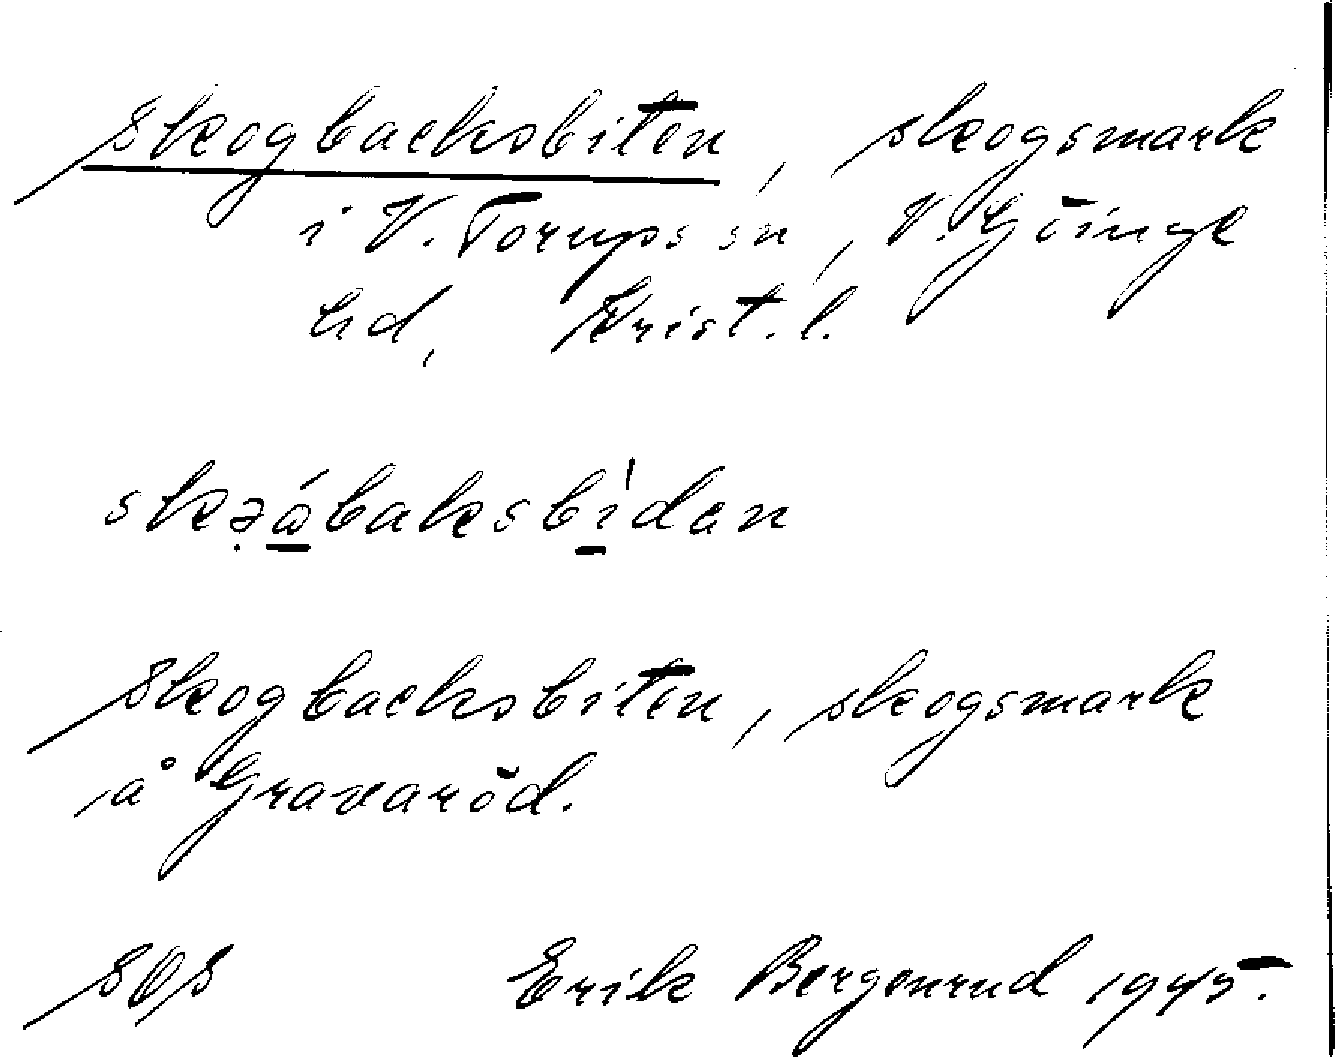 Skogbacksbiten, skogsmark
i V. Torups sn, V. Göinge
hd, Krist. l.
skəábaksbìdan
Skogbacksbiten, skogsmark
å Gravaröd.
SOS Erik Bergenrud 1945.